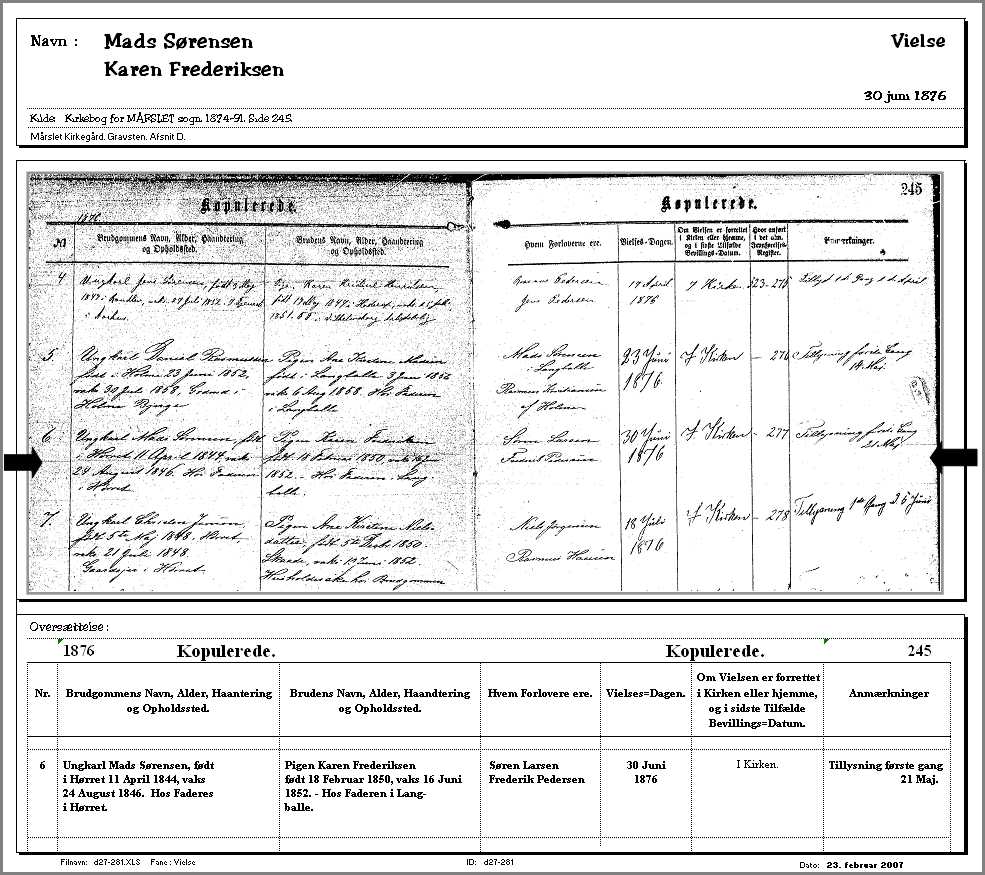 Navn : Mads Sørensen Vielse
Karen Frederiksen
30 juni 1876
Kilde: Kirkebog for MÅRSLET sogn. 1874-91. Side 245.
Mårslet Kirkegård. Gravsten. Afsnit D.
245
Kopulerede. Kopulerede.
1876
№ Brudgommens Navn, Alder, Haandtering og Opholdssted. Brudens Navn, Alder, Haandtering og Opholdssted. Hvem Forloverne ere. Vielses-Dagen. Om Vielsen er forrettet i Kirken eller hjemme, og i sidste Tilfælde Bevillings-Datum. Hvor anført i det alm. Jevnførelses-Register. Anmærkninger.
4 Ungkarl Jens Sørensen, født
Jens Pedersen 19 April 1876 I Kirken
5. Ungkarl Daniel Rasmussen Pigen Ane Kirstine Mads Sørensen 23 Juni I Kirken - 276 Tillysning første Gang
født i Holme 23 Juni 1852, født i Langballe 3 Juni 1852 i Langballe 1876. 19 Maj.
vakc 30 Juli 1858, vakc 6 Aug 1858. Hos Faderen
Holme Bjerge i Langballe af Holme
6. Ungkarl Mads Sørensen, født Pigen Karen Frederiksen Søren Larsen 30 Juni I Kirken - 277 Tillysning første Gang
i Hørret 11 April 1844, vakc født 18 Februar 1850, vakc 16 Juni Frederik Pedersen 1876 21 Maj
24 August 1846. Hos Faderen 1852. - Hos Faderen i Lang-
i Hørret. balle.
7. Ungkarl Christen Jensen, Pigen Ane Kirstine Niels- Niels Jørgensen 18 Juli I Kirken - 278 Tillysning 1ste Gang
født 5te Maj 1848. Hørret, datter, født 1850. 1876
vakc 21 Juli 1848. Rasmus Hansen
Gaardejer i Hørret
Oversættelse :
1876 Kopulerede. Kopulerede. 245
Nr. Brudgommens Navn, Alder, Haantering og Opholdssted. Brudens Navn, Alder, Haandtering og Opholdssted. Hvem Forlovere ere. Vielses=Dagen. Om Vielsen er forrettet i Kirken eller hjemme, og i sidste Tilfælde Bevillings=Datum. Anmærkninger
6 Ungkarl Mads Sørensen, født Pigen Karen Frederiksen Søren Larsen 30 Juni I Kirken. Tillysning første gang
i Hørret 11 April 1844, vaks født 18 Februar 1850, vaks 16 Juni Frederik Pedersen 1876 21 Maj.
24 August 1846. Hos Faderes 1852. - Hos Faderen i Lang-
i Hørret. balle.
Filnavn: d27-281.XLS Fane : Vielse ID: d27-281 Dato: 23. februar 2007